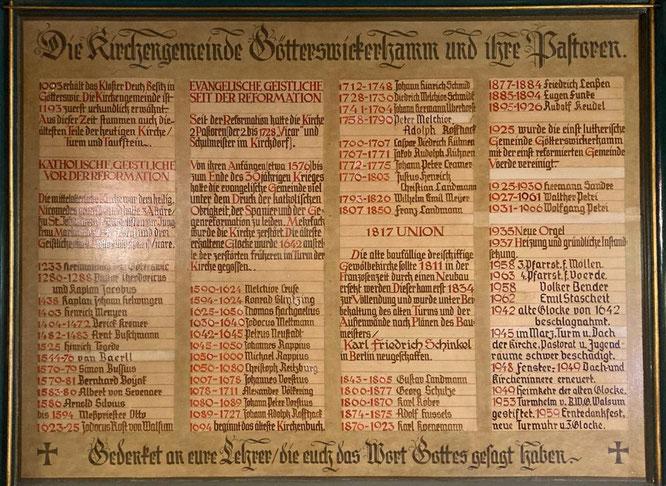 Die Kirchengemeinde Götterswickerhamm und ihre Pastoren.
1003 erhält das Kloster Deutz Besitz in
Götterswic. Die Kirchengemeinde ist
1193 zuerst urkundlich erwähnt.
Aus dieser Zeit stammen auch die
ältesten Teile der heutigen Kirche/
Turm und Taufstein.
KATHOLISCHE GEISTLICHE
VOR DER REFORMATION
Die mittelalterliche Kirche war dem heilig.
Nicomedes
1233
1280-1288 Pastor Theodoricus
und Kaplan Jacobus
1438 Kaplan Johann
1403 Henrich Menzen
1464-1472 Derick Kromer
1482-1483 Arnt Buschmann
1525 Henrich Tegeda
1544-76 van Baerll
1570-79 Simon Bussius
1579-81 Bernhard
1583-86 Albert van Sevenaer
1586 Arnold Silvius
bis 1594 Meßpriester Otto
1623-25 Jodocus Rost von Walsum
EVANGELISCHE GEISTLICHE
SEIT DER REFORMATION
Seit der Reformation hatte die Kirche
2 Pastoren (der 2. bis 1728 „Vicar" und
Schulmeister im Kirchdorf).
Von ihren Anfängen (etwa 1576) bis
zum Ende des 30jährigen Krieges
hatte die evangelische Gemeinde viel
unter dem Druck der katholischen
Obrigkeit der Spanier und der Ge-
genreformation zu leiden. Mehrfach
wurde die Kirche zerstört. Die älteste
erhaltene Glocke wurde 1642 anstel-
le der zerstörten früheren im Turm der
Kirche gegossen.
1590-1624 Melchior Cruse
1594-1624 Konrad Glintzing
1625-1636 Thomas
1636-1640 Jodocus Meltmann
1642-1645 Petrus Neustadt
1645-1650 Johannes Rappius
1650-1680 Michael Rappius
1656-1680 Christoph
1667-1678 Johannes Vorstius
1678-1711 Alexander Völkering
1680-1689 Johann Peter Vorstius
1689-1727 Johann Adolph
1694 beginnt das älteste Kirchenbuch.
1712-1748 Johann Hinrich Schmid
1728-1736 Diedrich Melchior Schmidt
1741-1764 Johann Hermann
1758-1790 Peter Melchior
Adolph
1766-1767 Caspar Diederich Kühnen
1767-1771 Jakob Rudolph Kühnen
1772-1775 Johann Peter Cramer
1776-1803 Justus Henrich
Christian Landmann
1793-1826 Wilhelm Emil Meyer
1807-1850 Franz Landmann
1817 UNION
Die alte baufällige dreischiffige
Gewölbekirche sollte 1811 in der
Franzosenzeit durch einen Neubau
ersetzt werden. Dieser kam erst 1834
zur Vollendung und wurde unter Bei-
behaltung des alten Turms und der
Außenwände nach Plänen des Bau-
meisters/
Karl Friedrich Schinkel
in Berlin neugeschaffen.
1843-1865 Gustav Landmann
1866-1877 Georg Schultze
1866-1880 Karl Rober
1874-1875 Adolf
1876-1923 Karl Koenemann
1877-1884 Friedrich Lenßen
1885-1894 Eugen Funke
1895-1926 Rudolf Keudel
1925 wurde die einst lutherische
Gemeinde Götterswickerhamm
mit der einst reformierten Gemeinde
Voerde vereinigt.
1925-1930 Hermann Sander
1927-1961 Walther Petri
1931-1966 Wolfgang Petri
1935 Neue Orgel
1937 Heizung und gründliche Instand-
setzung.
1958 3. Pfarrst. F. Möllen.
1963 4. Pfarrst. F. Voerde.
1958 Volker Bender
1962 Emil Stascheit
1942 alte Glocke von 1642
beschlagnahmt.
1945 im März, Turm u. Dach
der Kirche, Pastorat u. Jugend-
räume schwer beschädigt.
1948 Fenster-, 1949 Dach-und
Kircheninnere erneuert.
1949 Heimkehr der alten Glocke.
1953 Turmhelm v. R.W.G. Walsum
gestiftet. 1959 Erntedankfest,
neue Turmuhr u. 3. Glocke.
Gedenket an eure Lehrer/die euch das Wort Gottes gesagt haben